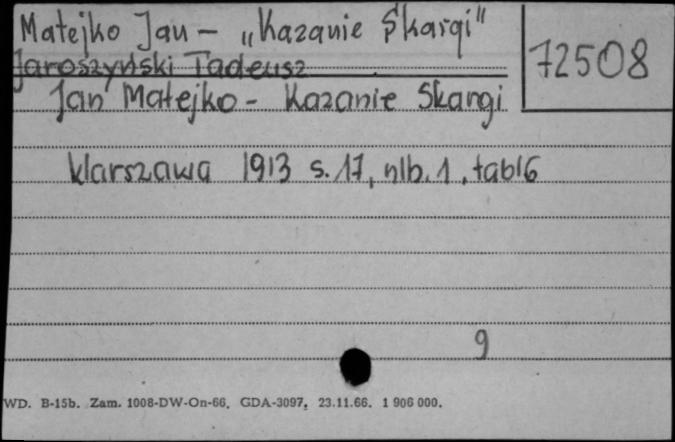 Matejko Jan - „Kazanie Skargi"
72508
Jaroszyński Tadeusz
Jan Matejko - Kazanie Skargi
Warszawa 1913 s. 17, nlb. 1, tabl 6
9
WD. B-15b. Zam. 1008-DW-On-66. GDA-3097. 23.11.66. 1 906 000.